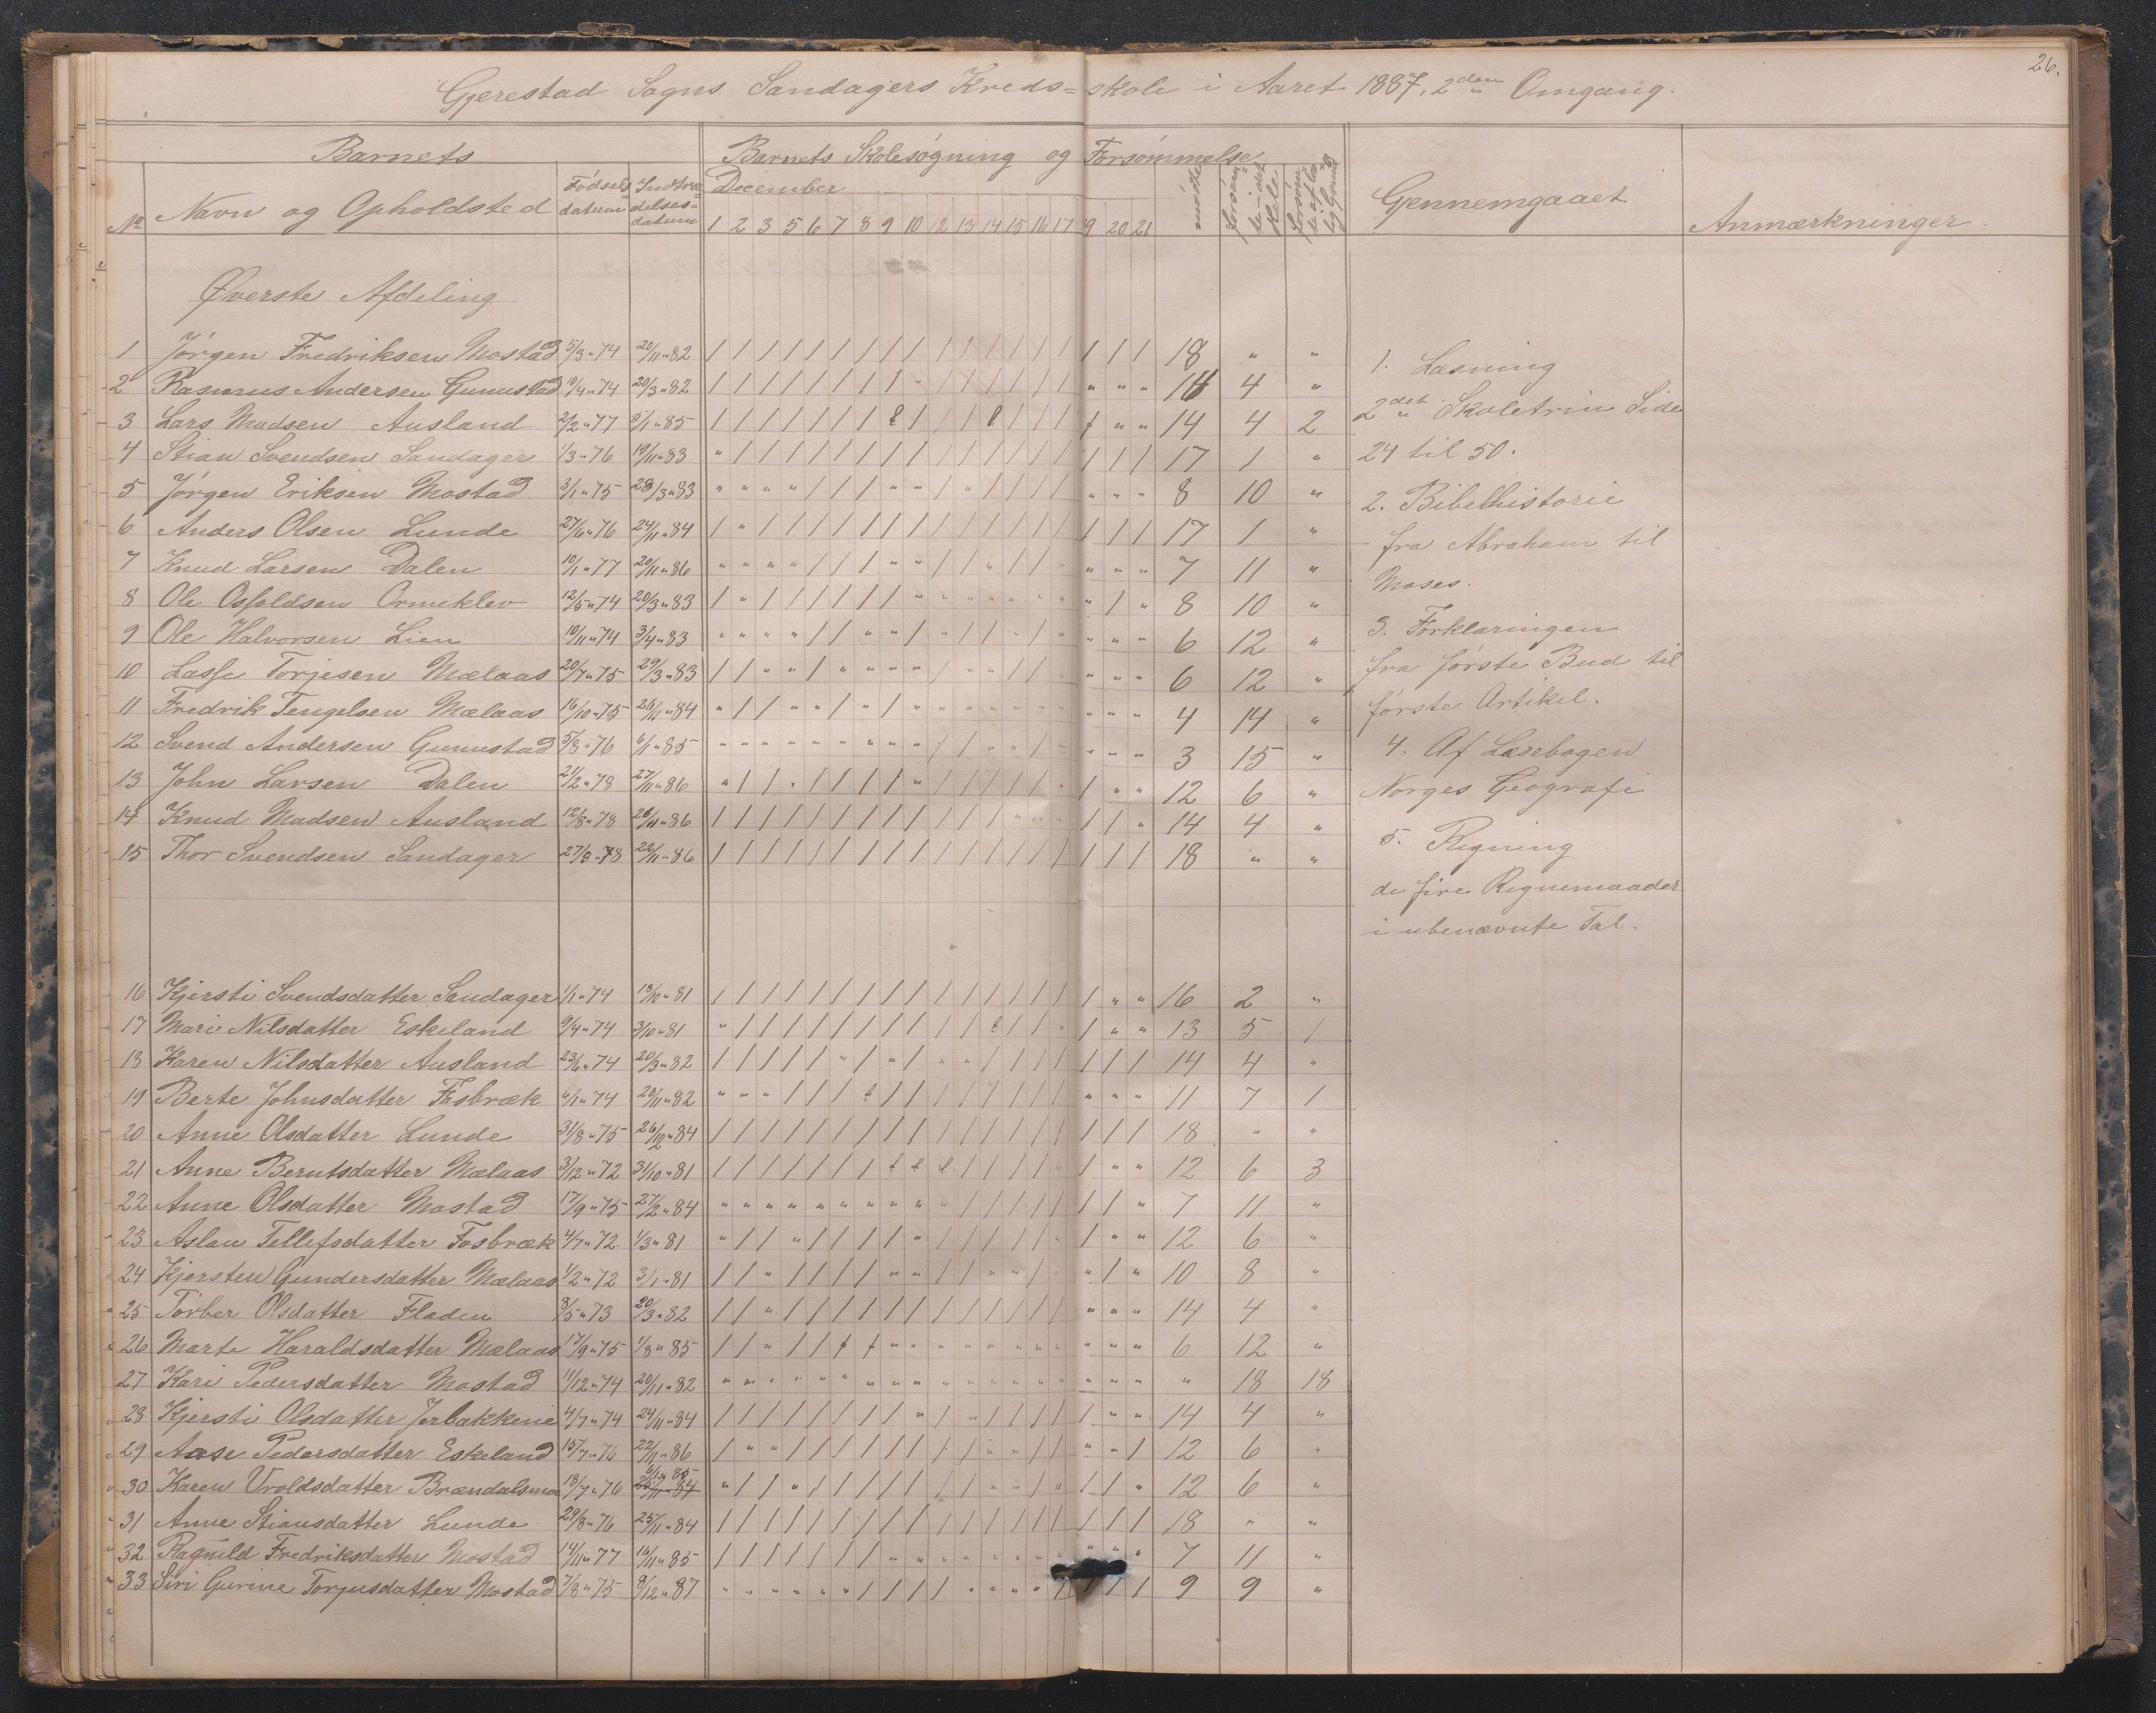 26.
Gjerestad Sogns Sandagers Kreds=skole i Aaret 1887, 2den Omgang.
Barnets
Barnets Skolesøgning og Forsømmelse
No Navn og Opholdsted Fødselsdatum Indtrædelses=datum December møder Gjennemgaaet Anmærkninger.
1 2 3 5 6 7 8 9 10 12 13 14 15 16 17 19 20 21
Øverste Afdeling
1 Jørgen Fredriksen Mostad 5/3 " 74 20/11 " 82 / / / / / / / / / / / / / / / / / / 18 " "
2 Rasmus Andersen Gunnustad 10/4 " 74 20/3 " 82 4 "
3 Lars Madsen Ausland 2/2 " 77 5/1 " 85 14 4 2
4 Stian Svendsen Sandager 1/3 " 76 19/11 " 83 " / / / / / / / / / / / / / / / / / 17 1 "
5 Jørgen Eriksen Mostad 3/1 " 75 28/3 " 83 8 10 "
6 Anders Olsen Lunde 27/6 " 76 24/11 " 84 / " / / / / / / / / / / / / / / / / 17 1 "
7 Knud Larsen Dalen 10/1 " 77 20/11 " 86 7 11 "
8 Ole Osfoldsen Ormeklev 12/5 " 74 20/3 " 83 8 10 "
9 Ole Halvorsen Lien 10/11 " 74 3/4 " 83 6 12 "
10 Lasse Torjesen Mælaas 20/7 " 75 29/3 " 83 6 12 "
11 Fredrik Tengelsen Mælaas 16/10 " 75 26/11 " 84 4 14 "
12 Svend Andersen Gunnustad 5/8 " 76 6/1 " 85 3 15 "
13 John Larsen Dalen 21/2 " 78 27/11 " 86 12 6 "
14 Knud Madsen Ausland 12/8 " 78 26/11 " 86 14 4 "
15 Thor Svendsen Sandager 27/8 " 78 22/11 " 86 / / / / / / / / / / / / / / / / / / 18 " "
16 Kjersti Svendsdatter Sandager 1/1 " 74 18/10 " 81 / / / / / / / / / / / / / / / / " " 16 2 "
17 Mari Nilsdatter Eskeland 9/4 " 74 3/10 " 81 13 5 1
18 Karen Nilsdatter Ausland 23/6 " 74 20/3 " 82 14 4 "
19 Berte Johnsdatter Fosbræk 6/1 " 74 20/11 " 82 11 7 1
20 Anne Olsdatter Lunde 31/8 " 75 26/10 " 84 / / / / / / / / / / / / / / / / / / 18 " "
21 Anne Berntsdatter Mælaas 3/12 " 72 31/10 " 81 12 6 3
22 Anne Olsdatter Mostad 17/9 " 75 27/2 " 84 7 11 "
23 Aslau Tellefsdatter Fosbræk 4/7 " 72 1/3 " 81 12 6 "
24 Kjersten Gundersdatter Mælaas 1/2 " 72 3/1 " 81 10 8 "
25 Torber Olsdatter Fladen 8/5 " 73 20/3 " 82 14 4 "
26 Marte Haraldsdatter Mælaas 17/9 " 75 1/8 " 85 6 12 "
27 Kari Pedersdatter Mostad 11/12 " 74 20/11 " 82 " " " " " " " " " " " " " " " " " " " 18 18
28 Kjersti Olsdatter Jerbakkene 4/7 " 74 24/11 " 84 14 4 "
29 Aase Pedersdatter Eskeland 15/7 " 76 22/11 " 86 12 6 "
30 Karen Vroldsdatter Brændalsmo 18/7 " 76 6/12 " 85 25/11 " 84 12 6 "
31 Anne Stiansdatter Lunde 29/8 " 76 25/11 " 84 / / / / / / / / / / / / / / / / / / 18 " "
32 Ragnild Fredriksdatter Mostad 14/11 " 77 16/11 " 85 7 11 "
33 Siri Gurine Torjusdatter Mostad 7/8 " 75 9/12 " 87 9 9 "
1. Læsning
2det Skoletrin Side
24 til 50.
2. Bibelhistorie
fra Abraham til
Moses.
3. Forklaringen
fra første Bud til
første Artikel.
4. Af Læsebogen
Norges Geografi
5. Regning
de fire Regnemaader
i ubenævnte Tal.